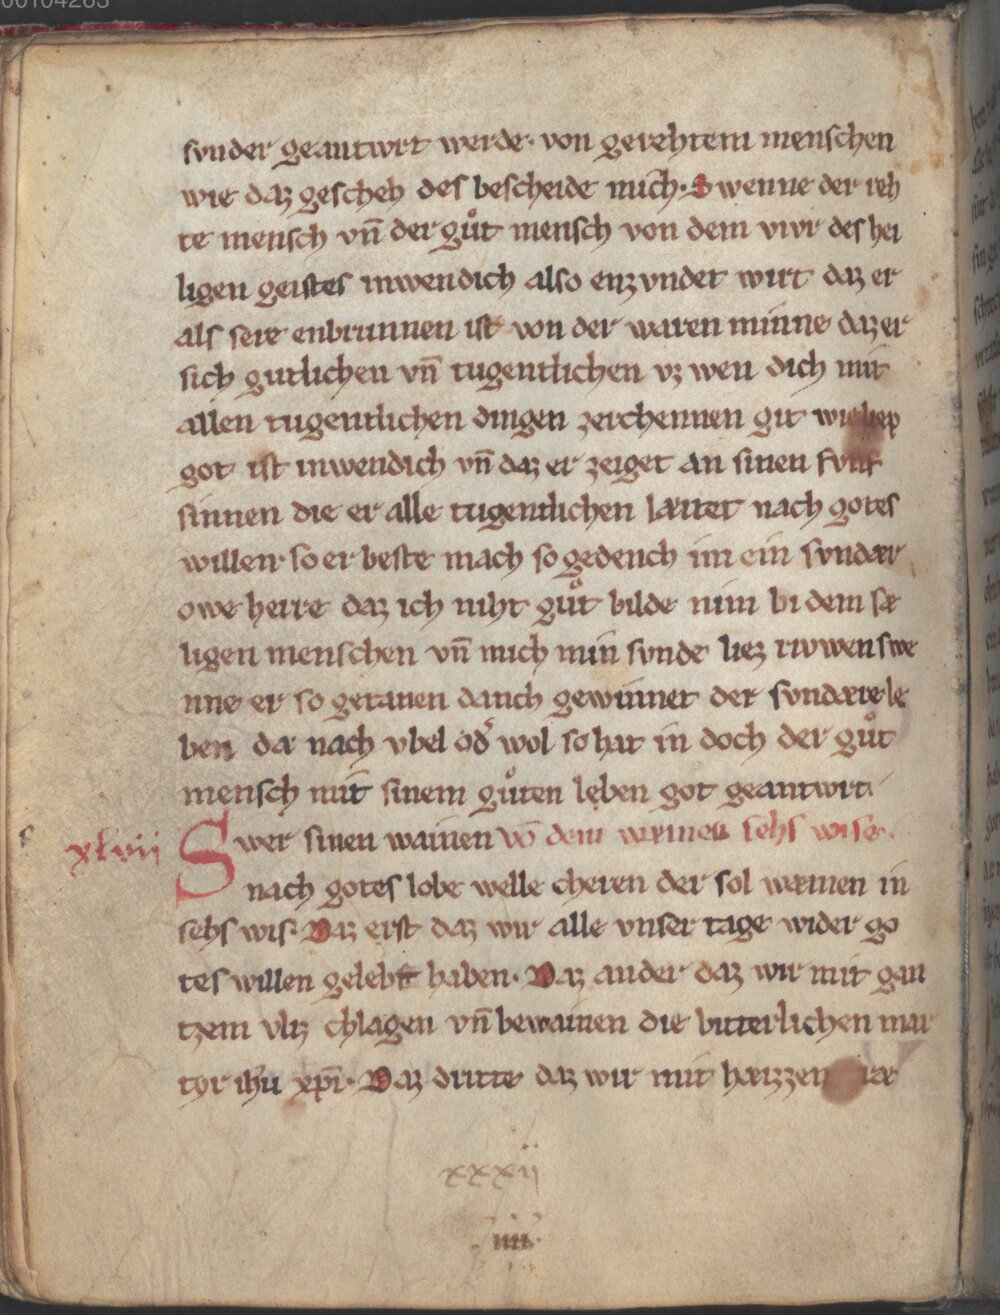 00104263
svnder geantwrt werde· von gerehtem menschen
wie daz gescheh des bescheide mich· Swenne der reh
te mensch vn̄ der gůt mensch von dem vivr des hei
ligen geistes inwendich also enzvndet wirt daz er
als sere enbrunnen ist von der waren minne daz er
sich gutlichen vn̄ tugentlichen vz wen dich mit
allen tugentlichen dingen zerchennen git wie liep
got ist inwendich vn̄ daz er zeiget an sinen fvnf
sinnen die er alle tugentlichen laitet nach gotes
willen· so er beste mach so gedench im ein svndær
owe herre daz ich niht gůt bilde nim bi dem sæ
ligen menschen vn̄ mich min svnde liez rivwen swe
nne er so getanen danch gewinnet der svndære le
ben dar nach vbel od̓ wol so hat in doch der gůt
mensch mit sinem gůten leben got geantwrt·
xlvii
Swer sinen wainen vō dem wæinen sehs wise·
nach gotes lobe welle cheren der sol wæinen in
sehs wis· Daz erst daz wir alle vnser tage wider go
tes willen gelebt haben· Daz ander daz wir mit gan
tzem vliz chlagen vn̄ bewainen die bitterlichen mar
tyr ih̄u xp̄i· Daz dritte daz wir mit hærzzen
xxxii
iiii·